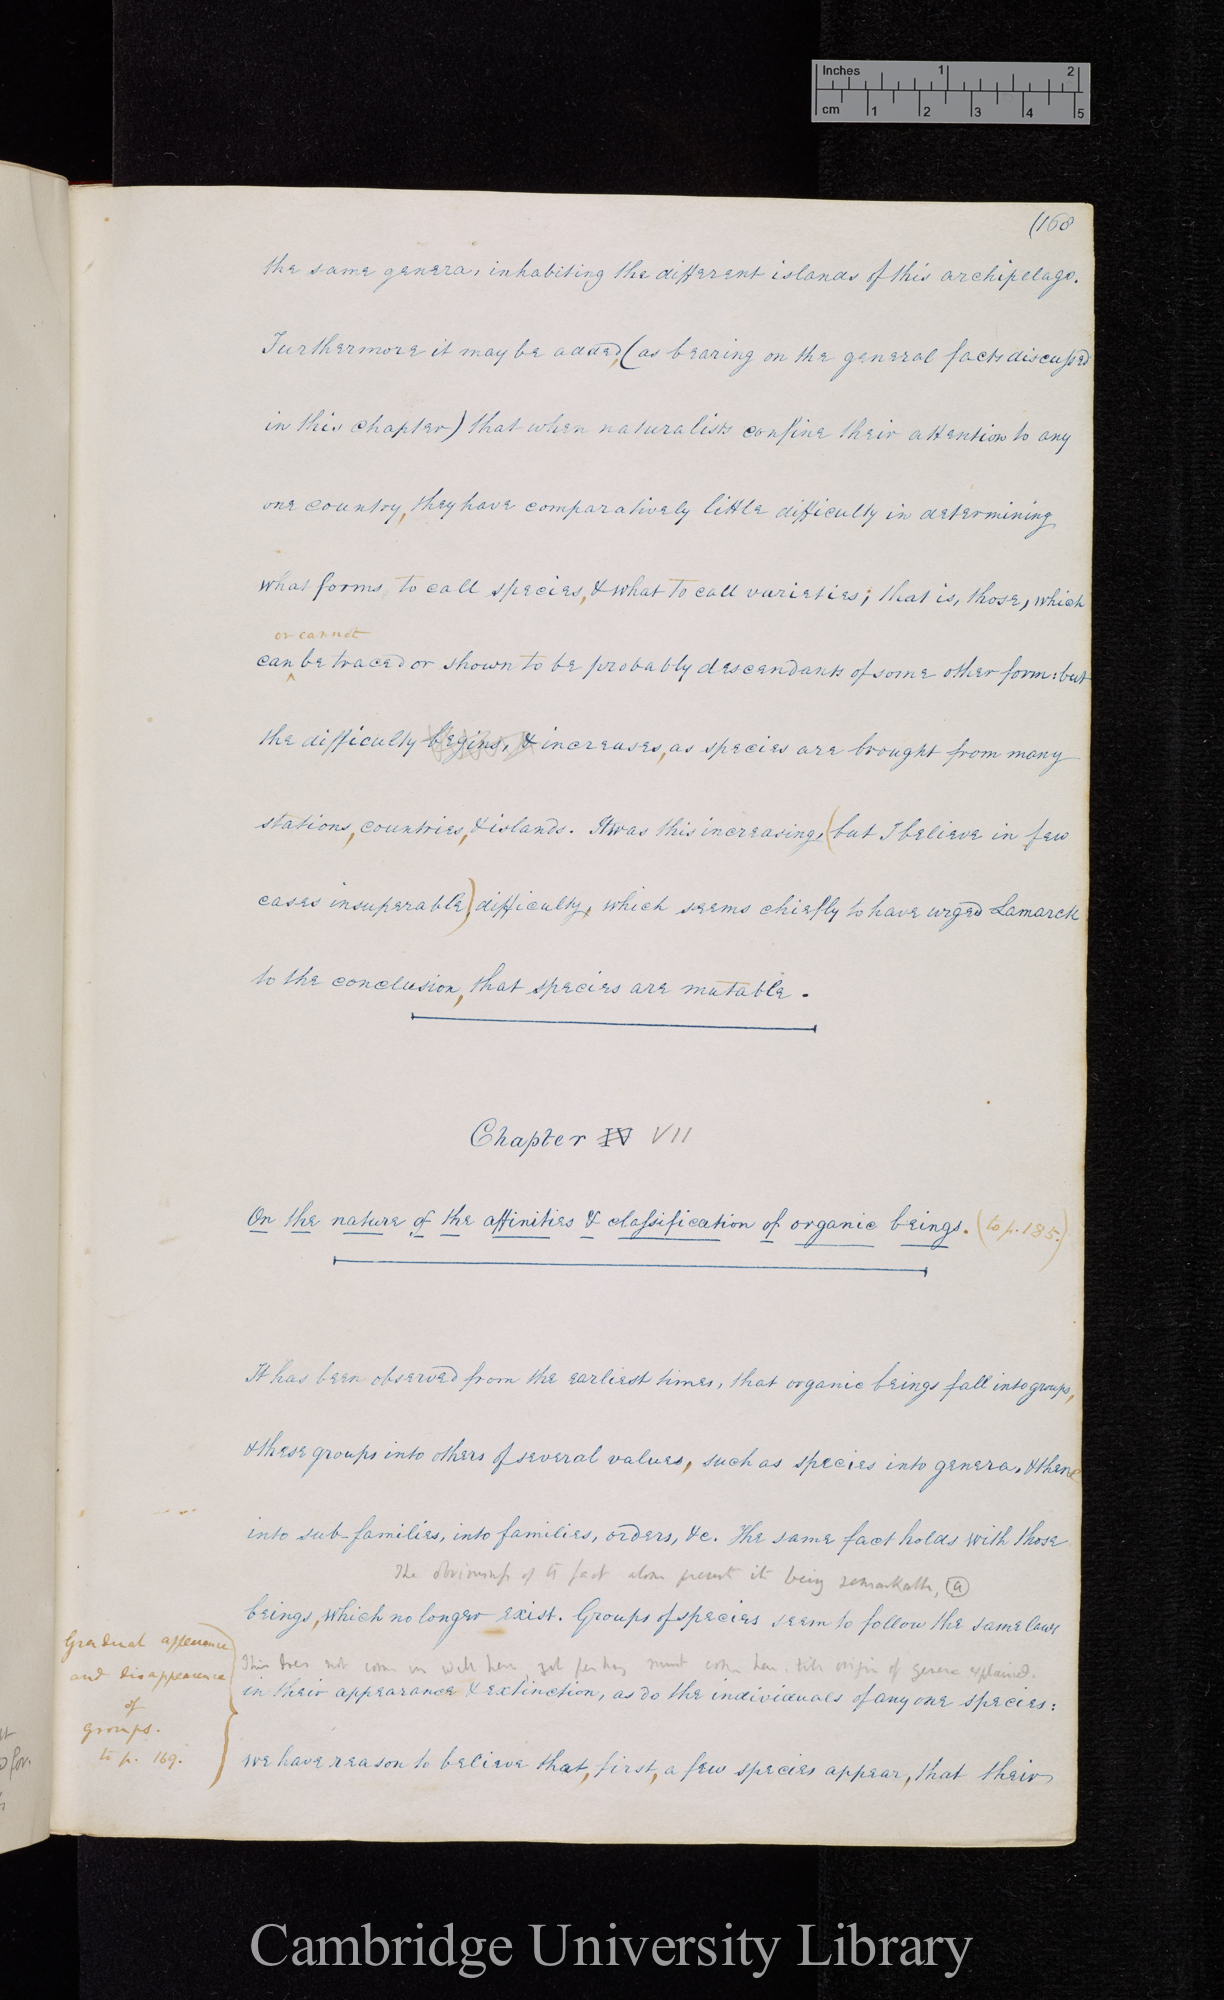 Inches 1 2
cm 1 2 3 4 5
(168
the same genera, inhabiting the different islands of this archipelago.
Furthermore it may be added, (as bearing on the general facts discussed
in this chapter) that when naturalists confine their attention to any
one country, they have comparatively little difficulty in determining
what forms to call species, & what to call varieties; that is, those, which
or cannot
can be traced or shown to be probably descendants of some other form: but
the difficulty begins, & increases, as species are brought from many
stations, countries, & islands. It was this increasing, (but I believe in few
cases insuperable) difficulty, which seems chiefly to have urged Lamarck
to the conclusion, that species are mutable.
Chapter IV VII
On the nature of the affinities & classification of organic beings. (to p. 185.)
It has been observed from the earliest times, that organic beings fall into groups,
& these groups into others of several values, such as species into genera, & then
into sub-families, into families, orders, &c. The same fact holds with those
The obviousness of the fact alone prevent it being remarkable, (a)
beings, which no longer exist. Groups of species seem to follow the same laws
This does not come in well here, yet perhaps must come here, till origin of genera explained.
in their appearance & extinction, as do the individuals of any one species:
we have reason to believe that, first, a few species appear, that their
Gradual appearance
and disappearance
of
groups.
to p. 169.
Cambridge University Library